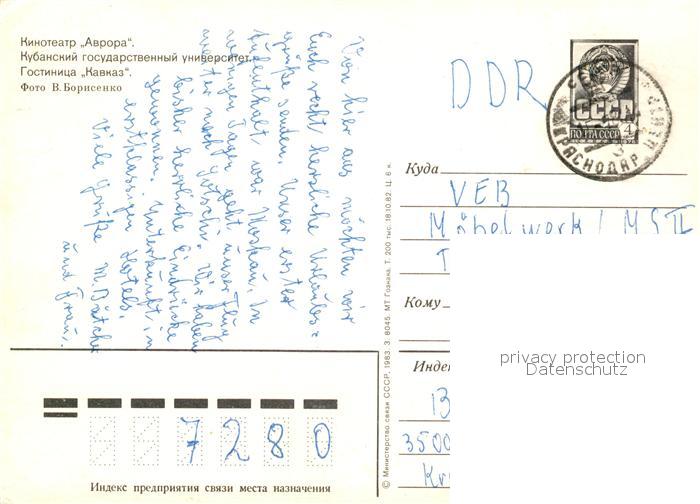 Кинотеатр „Аврора".
Кубанский государственный университет.
Гостиница „Кавказ".
Фото В. Борисенко
Von hier aus möchten wir
Euch recht herzliche Urlaubs-
grüße senden. Unser erster
Aufenthalt war Moskau. In
wenigen Tagen geht unser Flug
weiter nach Wir haben
bisher herrliche Eindrücke
gewonnen. Unterkunft in
erstklassigen Hotels.
Viele Grüße M. Bätcher
und Frau.
DDR
СССР
ПОЧТА СССР 4
КРАСНОДАР
Куда
VEB
Möbelwerk / MS II
T
Кому
privacy protection
Datenschutz
Инде
13
3500
Kr
7280
Индекс предприятия связи места назначения
© Министерство связи СССР, 1983. З. 8045. МТ Гознака. Т. 200 тыс. 18.10.82. Ц. 6 к.